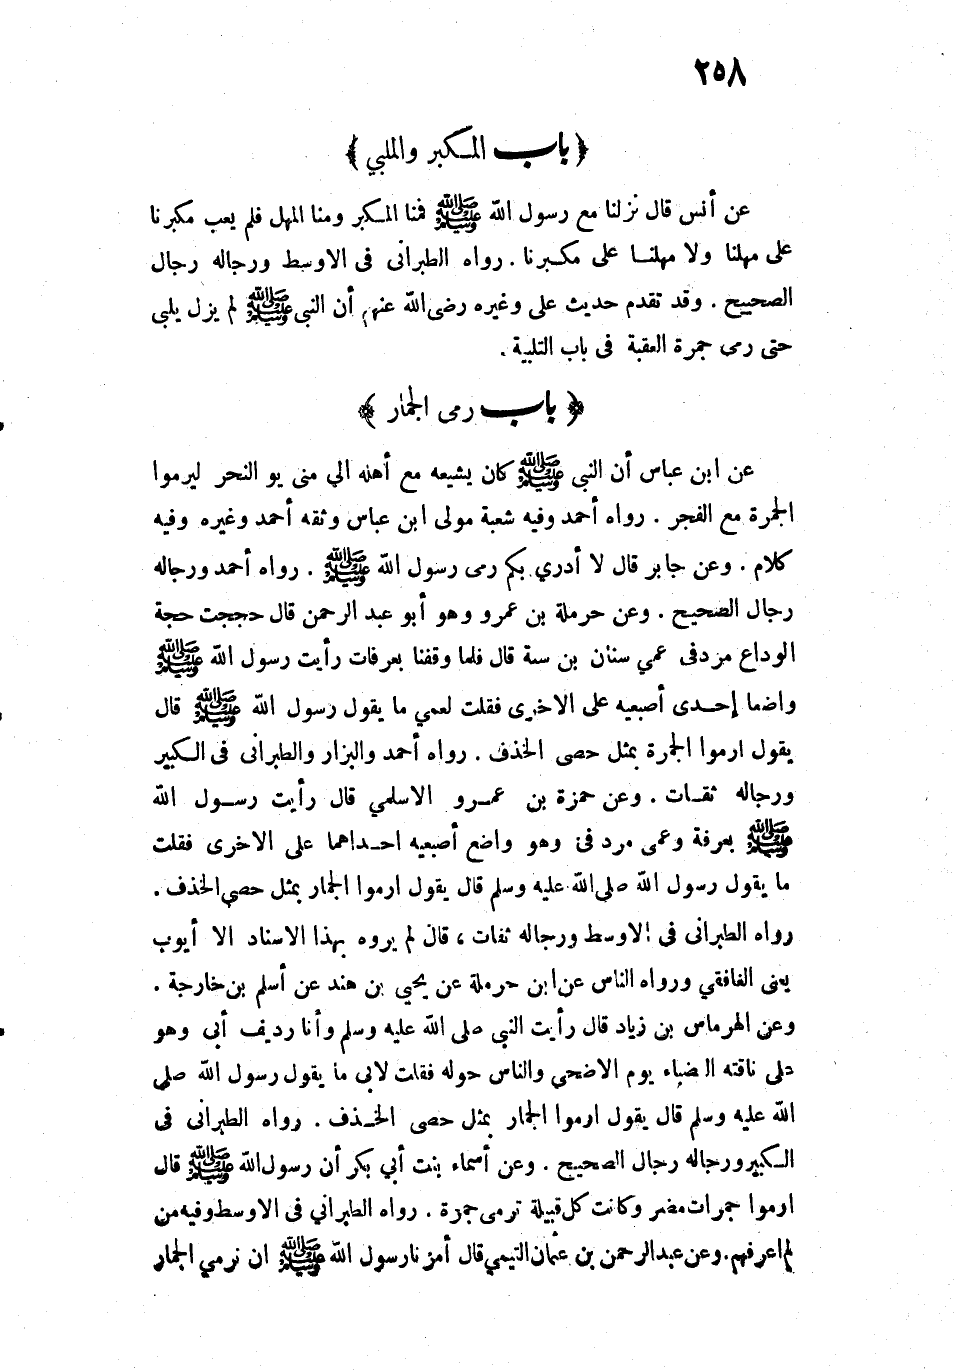 ٢٥٨
﴿ باب المكبر والملبي ﴾
عن أنس قال نزلنا مع رسول الله ﷺ فمنا المكبر ومنا المهل فلم يعب مكبرنا
على مهلنا ولا مهلنا على مكبرنا . رواه الطبرانى فى الاوسط ورجاله رجال
الصحيح . وقد تقدم حديث على وغيره رضى الله عنهم أن النبي ﷺ لم يزل يلبى
حتى رمى جمرة العقبة فى باب التلبية .
﴿ باب رمى الجمار ﴾
عن ابن عباس أن النبي ﷺ كان يشيعه مع أهله الي منى يو النحر ليرموا
الجمرة مع الفجر . رواه أحمد وفيه شعبة مولى ابن عباس وثقه أحمد وغيره وفيه
كلام . وعن جابر قال لا أدري بكم رمى رسول الله ﷺ . رواه أحمد ورجاله
رجال الصحيح . وعن حرملة بن عمرو وهو أبو عبد الرحمن قال حججت حجة
الوداع مردفى عمي سنان بن سنة قال فلما وقفنا بعرفات رأيت رسول الله ﷺ
واضعا إحدى أصبعيه على الاخرى فقلت لعمي ما يقول رسول الله ﷺ قال
يقول ارموا الجمرة بمثل حصى الخذف . رواه أحمد والبزار والطبرانى فى الكبير
ورجاله ثقات . وعن حمزة بن عمرو الاسلمي قال رأيت رسول الله
ﷺ بعرفة وعمى مردفى وهو واضع أصبعيه احداهما على الاخرى فقلت
ما يقول رسول الله صلى الله عليه وسلم قال يقول ارموا الجمار بمثل حصى الخذف .
رواه الطبرانى فى الاوسط ورجاله ثقات ، قال لم يروه بهذا الاسناد الا أيوب
يعنى الغافقي ورواه الناس عن ابن حرملة عن يحيى بن هند عن أسلم بن خارجة .
وعن الهرماس بن زياد قال رأيت النبى صلى الله عليه وسلم وأنا رديف أبى وهو
على ناقته العضباء يوم الاضحى والناس حوله فقلت لابى ما يقول رسول الله صلى
الله عليه وسلم قال يقول ارموا الجمار بمثل حصى الخذف . رواه الطبرانى فى
الكبير ورجاله رجال الصحيح . وعن أسماء بنت أبي بكر أن رسول الله ﷺ قال
ارموا جمرات مضر وكانت كل قبيلة ترمى جمرة . رواه الطبراني فى الاوسط وفيه من
لم اعرفهم . وعن عبدالرحمن بن عثمان التيمي قال أمرنا رسول الله ﷺ ان نرمي الجمار